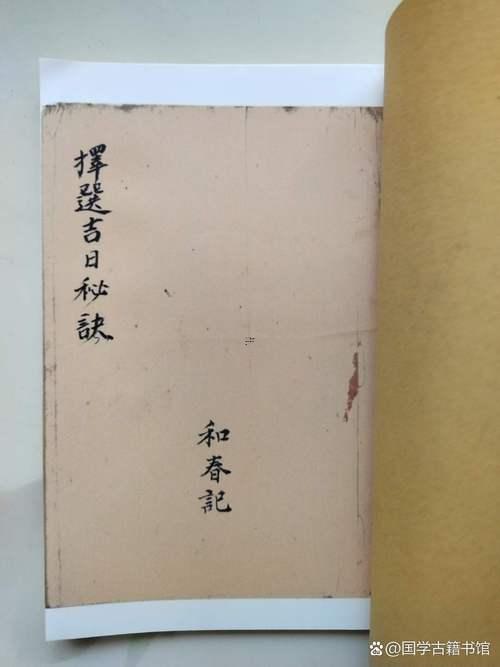 擇選吉日秘訣
和春記
国学古籍书馆